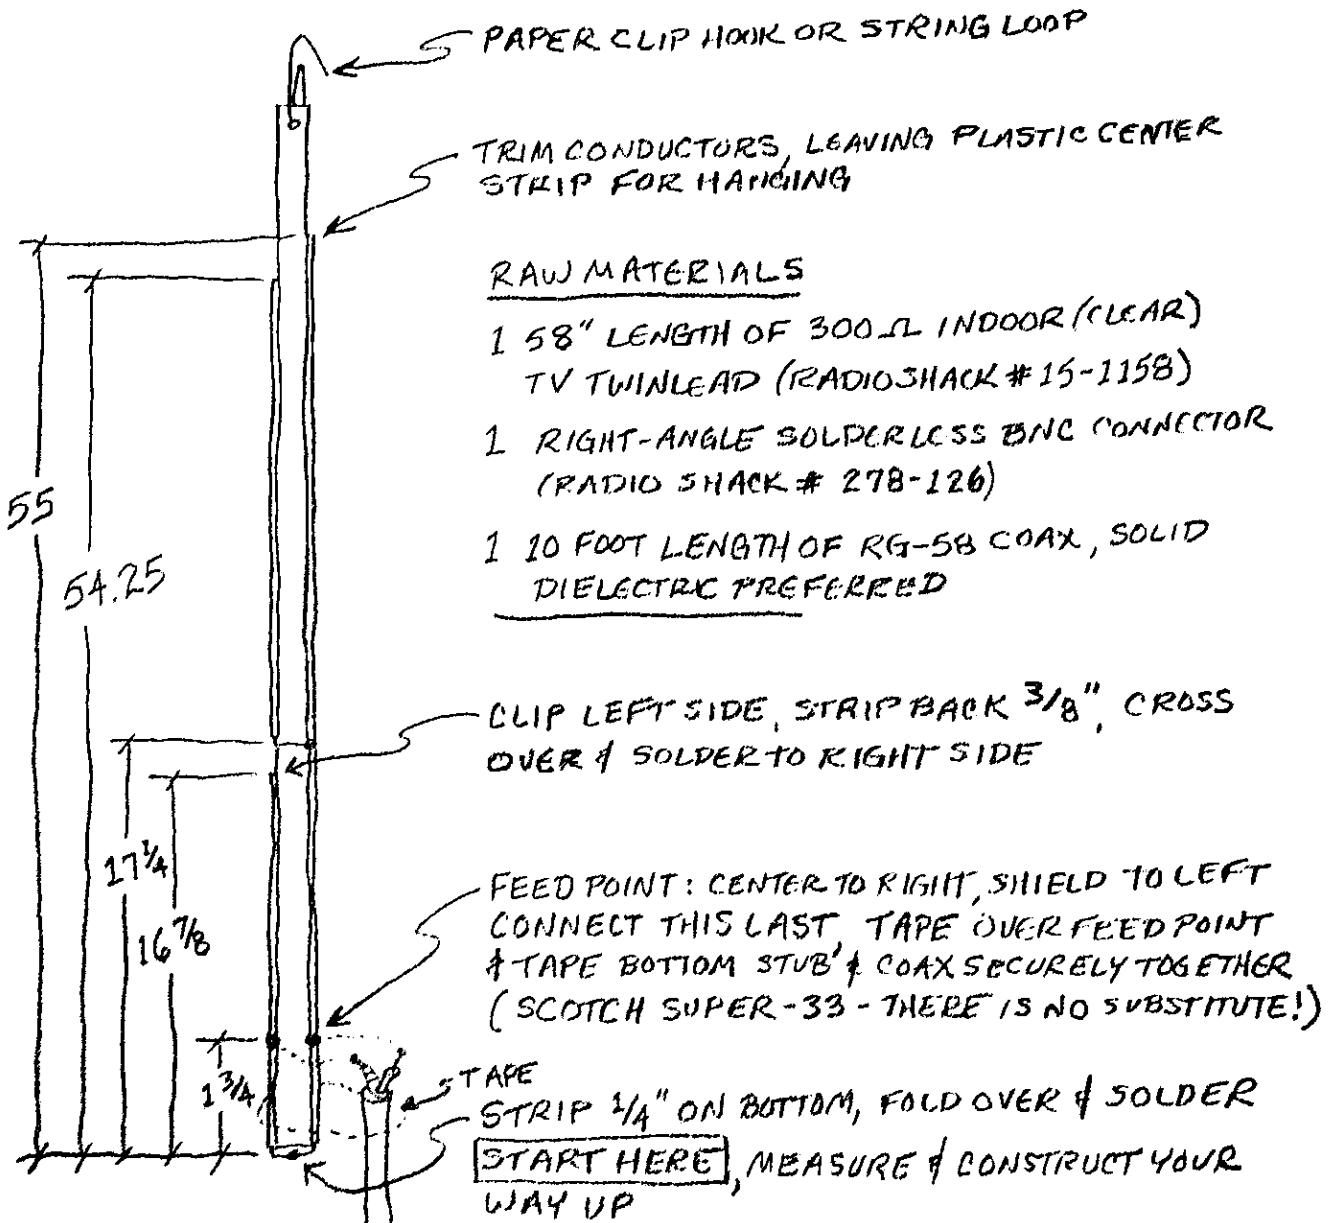 PAPER CLIP HOOK OR STRING LOOP
TRIM CONDUCTORS, LEAVING PLASTIC CENTER
STRIP FOR HANGING
RAW MATERIALS
1 58" LENGTH OF 300Ω INDOOR (CLEAR)
TV TWINLEAD (RADIOSHACK #15-1158)
1 RIGHT-ANGLE SOLDERLESS BNC CONNECTOR
(RADIO SHACK # 278-126)
1 10 FOOT LENGTH OF RG-58 COAX, SOLID
DIELECTRIC PREFERRED
55
54.25
CLIP LEFT SIDE, STRIP BACK 3/8", CROSS
OVER & SOLDER TO RIGHT SIDE
17 1/4
16 7/8
FEED POINT: CENTER TO RIGHT, SHIELD TO LEFT
CONNECT THIS LAST, TAPE OVER FEED POINT
& TAPE BOTTOM STUB & COAX SECURELY TOGETHER
(SCOTCH SUPER-33 - THERE IS NO SUBSTITUTE!)
1 3/4
TAPE
STRIP 1/4" ON BOTTOM, FOLD OVER & SOLDER
START HERE, MEASURE & CONSTRUCT YOUR
WAY UP